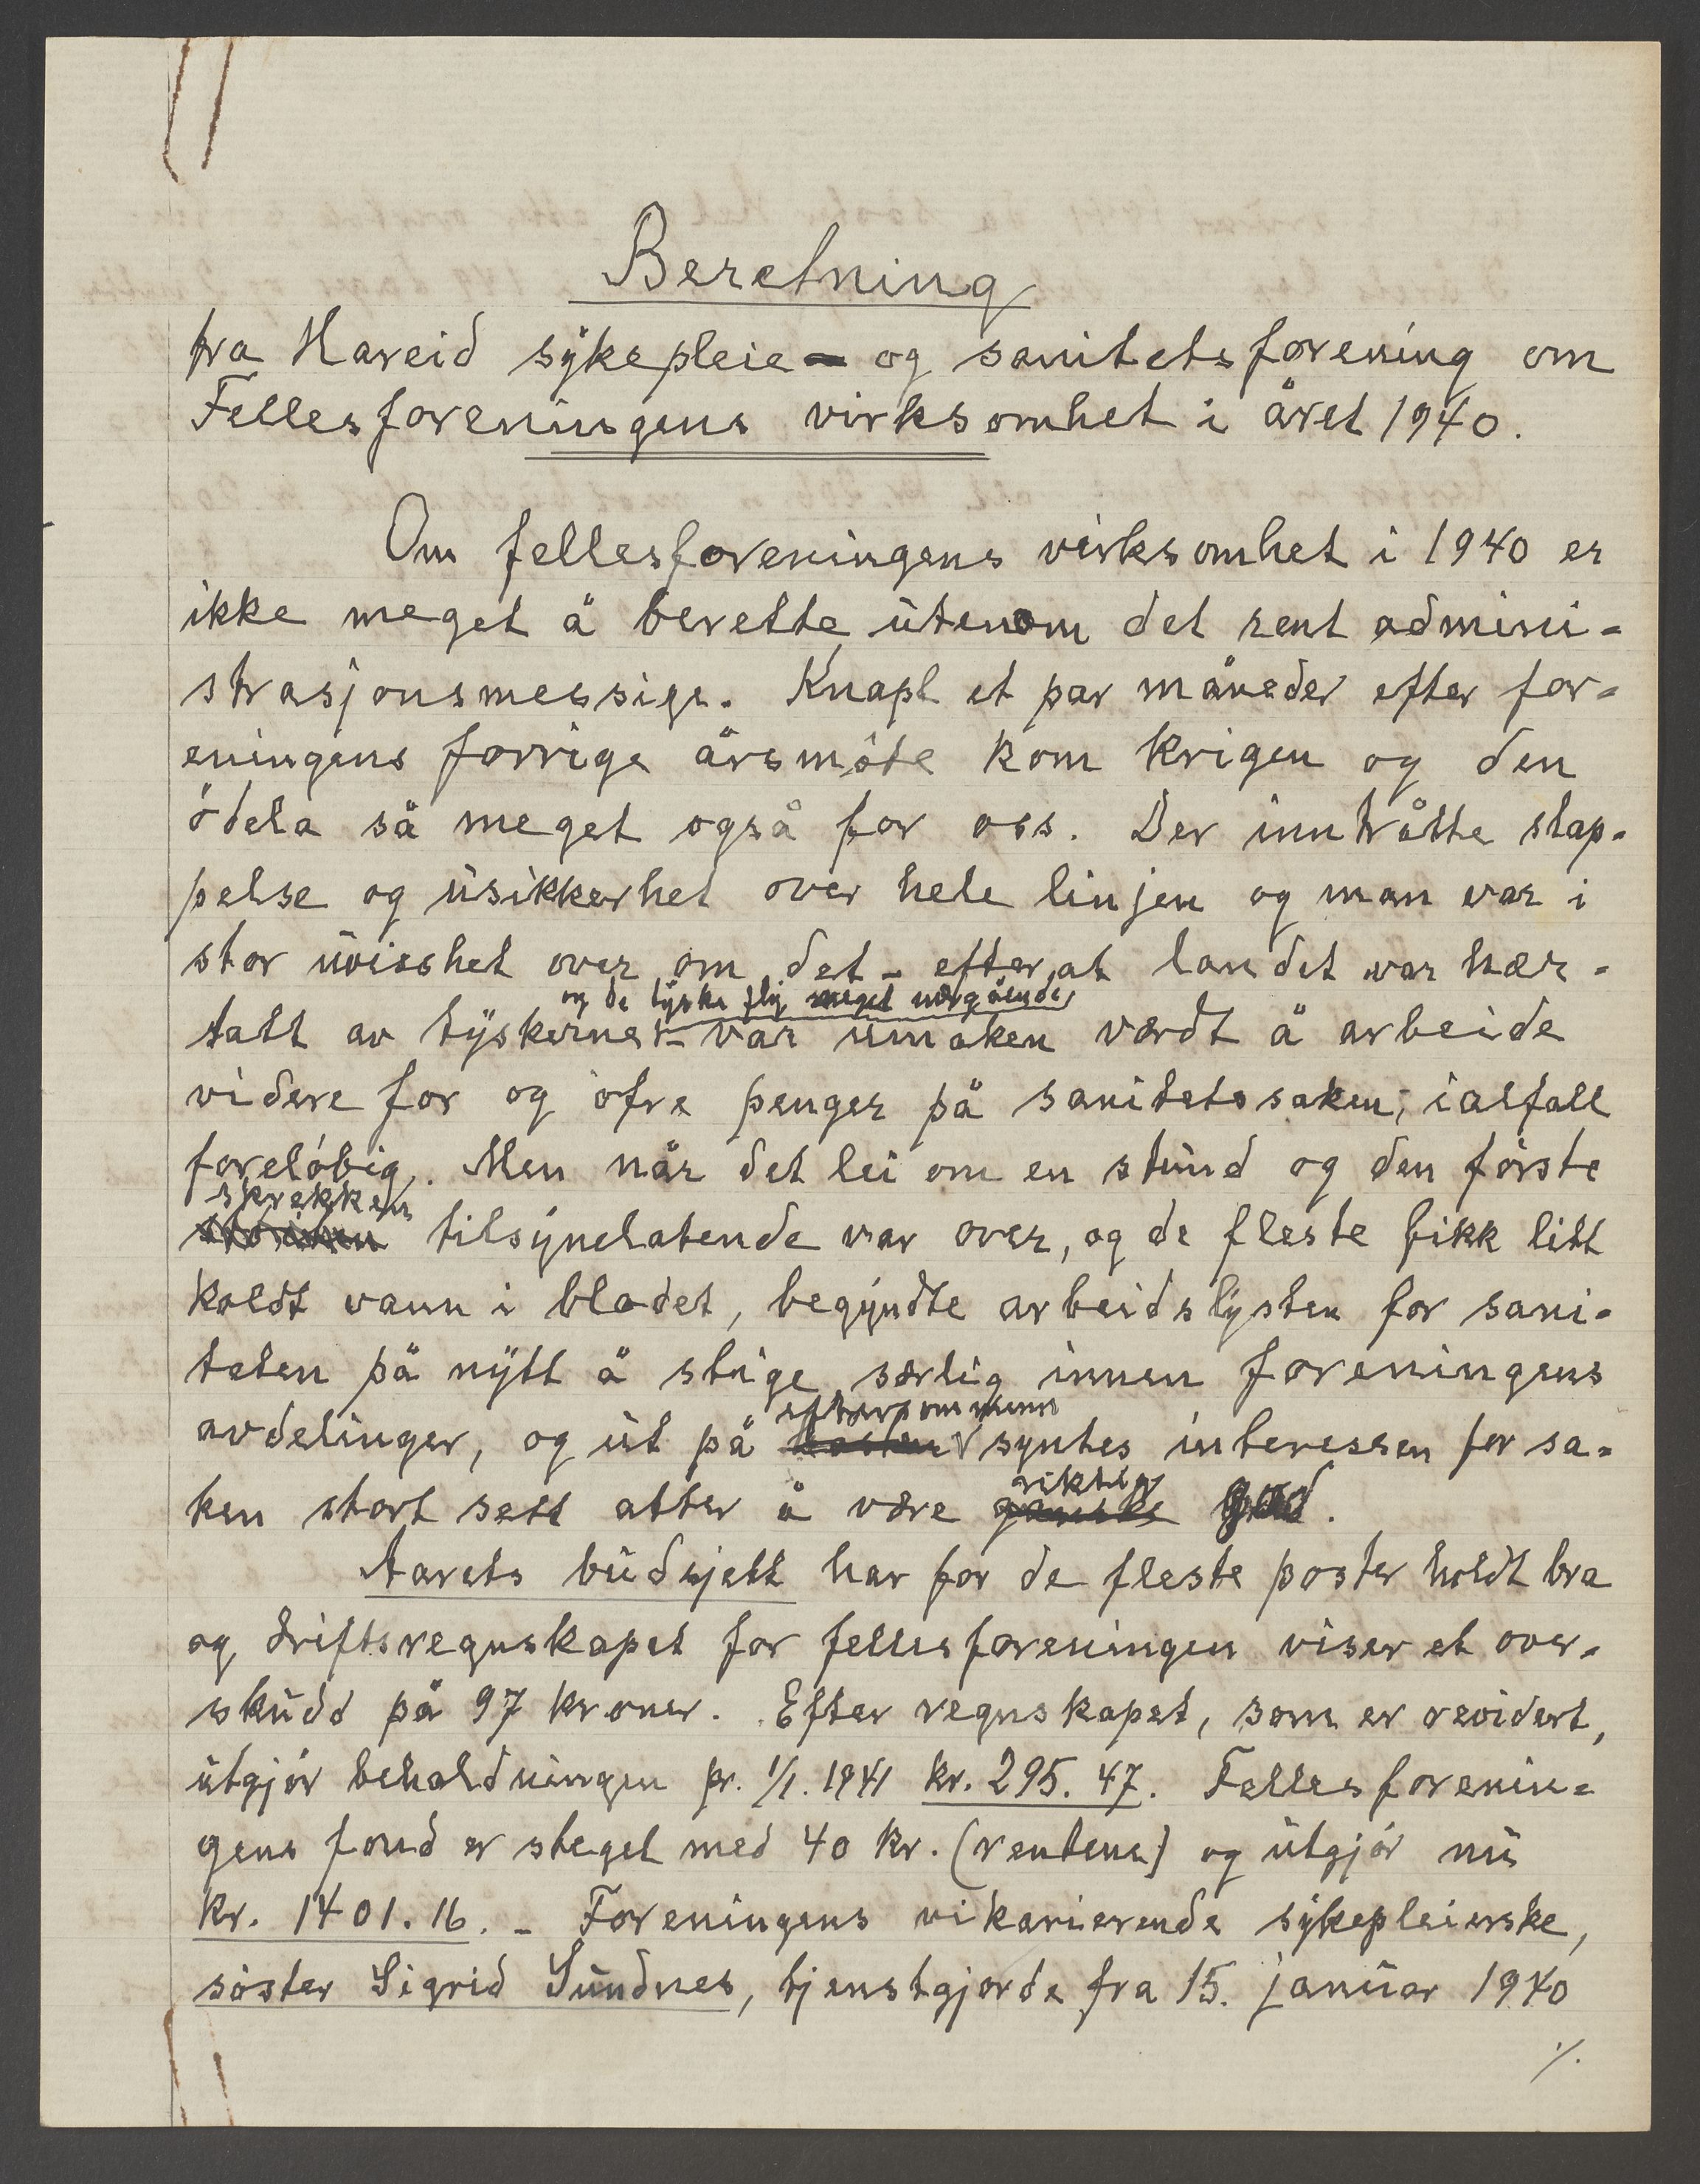 Beretning
fra Hareid sykepleie- og sanitetsforening om
Fellesforeningens virksomhet i året 1940.
Om fellesforeningens virksomhet i 1940 er
ikke meget å berette utenom det rent admini-
strasjonsmessige. Knapt et par måneder efter for-
eningens forrige årsmöte kom krigen og den
ödela så meget også for oss. Der inntrådte slap-
pelse og usikkerhet over hele linjen og man var i
stor uvisshet over om det - efter at landet var hær-
og de tyske fly meget nærgående
tatt av tyskerne - var umaken værdt å arbeide
videre for og ofre penger på sanitetssaken, ialfall
forelöbig. Men når det lei om en stund og den förste
skrekken
tilsynelatende var over, og de fleste fikk litt
koldt vann i blodet, begyndte arbeidslysten for sani-
teten på nytt å stige særlig innen foreningens
eftersommeren
avdelinger, og ut på høsten syntes interessen for sa-
riktig
ken stort sett atter å være ganske god.
Aarets budsjett har for de fleste poster holdt bra
og driftsregnskapet for fellesforeningen viser et over-
skudd på 97 kroner. Efter regnskapet, som er revidert,
utgjör beholdningen pr. 1/1. 1941 kr. 295.47. Fellesforenin-
gens fond er steget med 40 kr. (rentene) og utgjör nu
kr. 1401.16. - Foreningens vikarierende sykepleierske,
söster Sigrid Sundnes, tjenstgjorde fra 15. januar 1940
./.